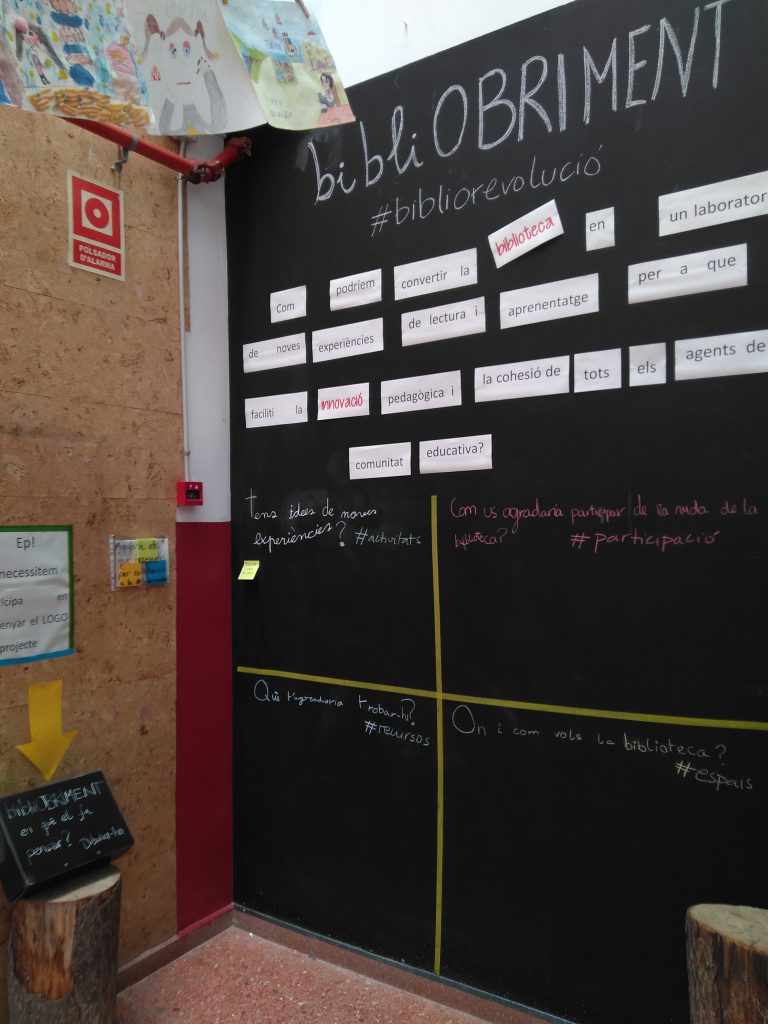 bibliOBRIMENT
#bibliorevolució
Com podríem convertir la biblioteca en un laborator
de noves experiències de lectura i aprenentatge per a que
faciliti la innovació pedagògica i la cohesió de tots els agents de
comunitat educativa?
Tens idees de noves
experiències? #activitats
Com us agradaria participar de la vida de la
biblioteca? #participació
Què t'agradaria trobar-hi?
#recursos
On i com vols la biblioteca?
#espais
POLSADOR
D'ALARMA
Ep!
necessitem
ticipa en
enyar el LOGO
projecte
bibliOBRIMENT
en què et fa
pensar? Dibuixa-ho